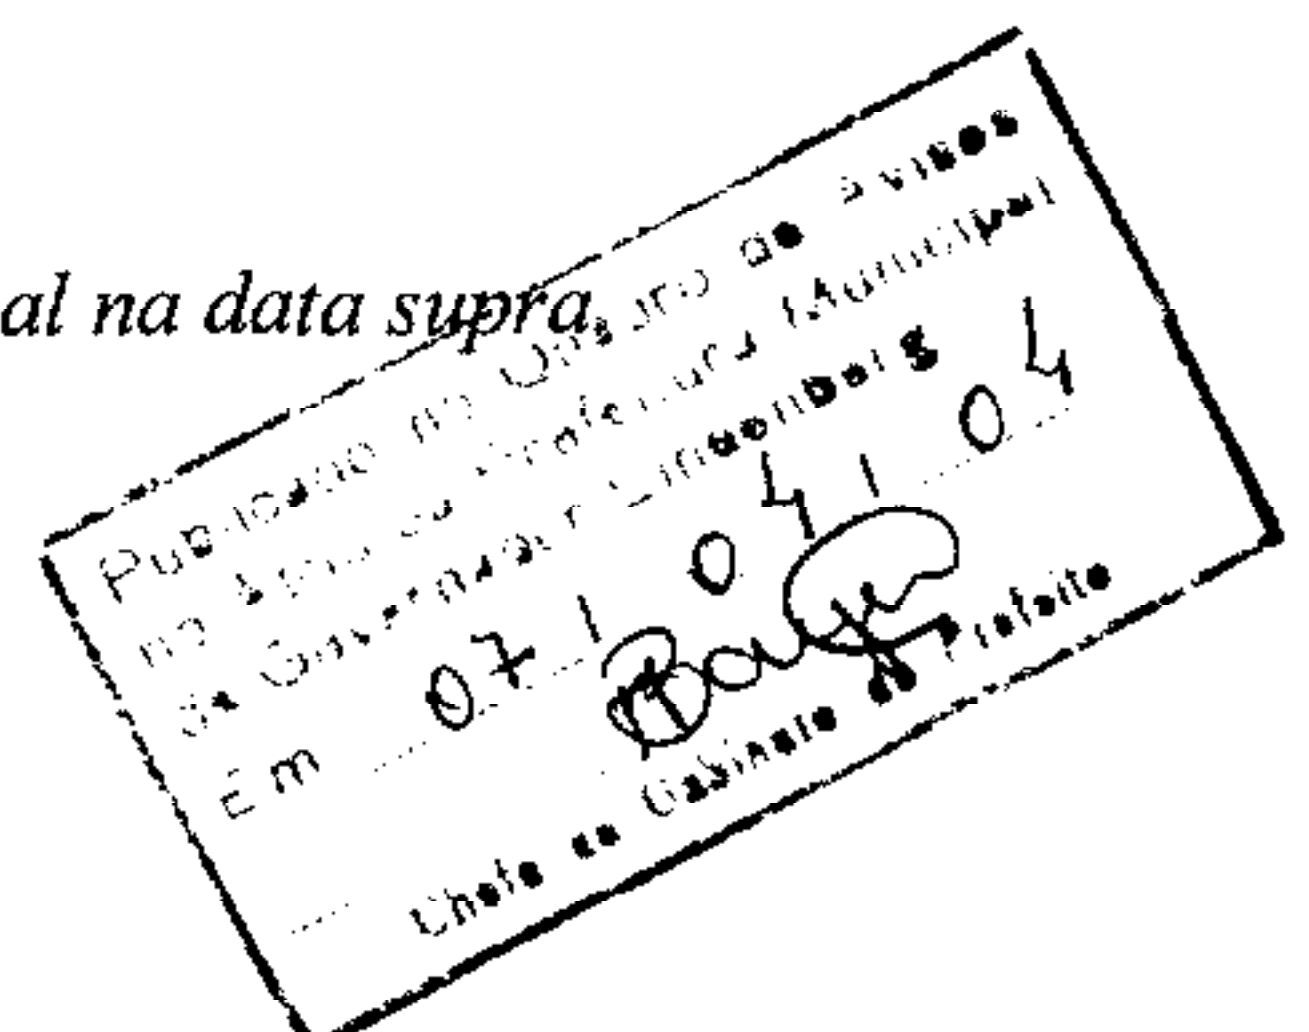 al na data supra.
Publicado no Quadro de Avisos
no da Prefeitura Municipal
de Governador Lindenberg
Em 07 / 04 / 04
Chefe de Gabinete do Prefeito